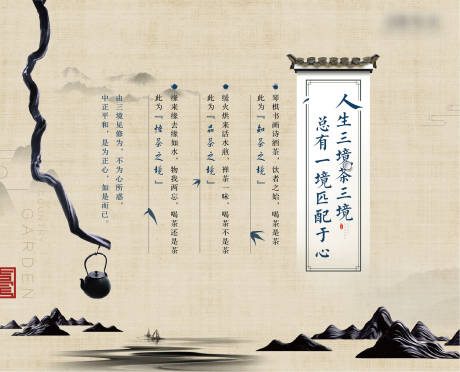 人生三境茶三境
总有一境匹配于心
琴棋书画诗酒茶，饮者之始，喝茶是茶
此为『知茶之境』
缓火烘来活水煎，禅茶一味，喝茶不是茶
此为『品茶之境』
缘来缘去缘如水，物我两忘，喝茶还是茶
此为『悟茶之境』
由三境见修为，不为心所惑，
中正平和，是为正心，如是而已。
GARDEN